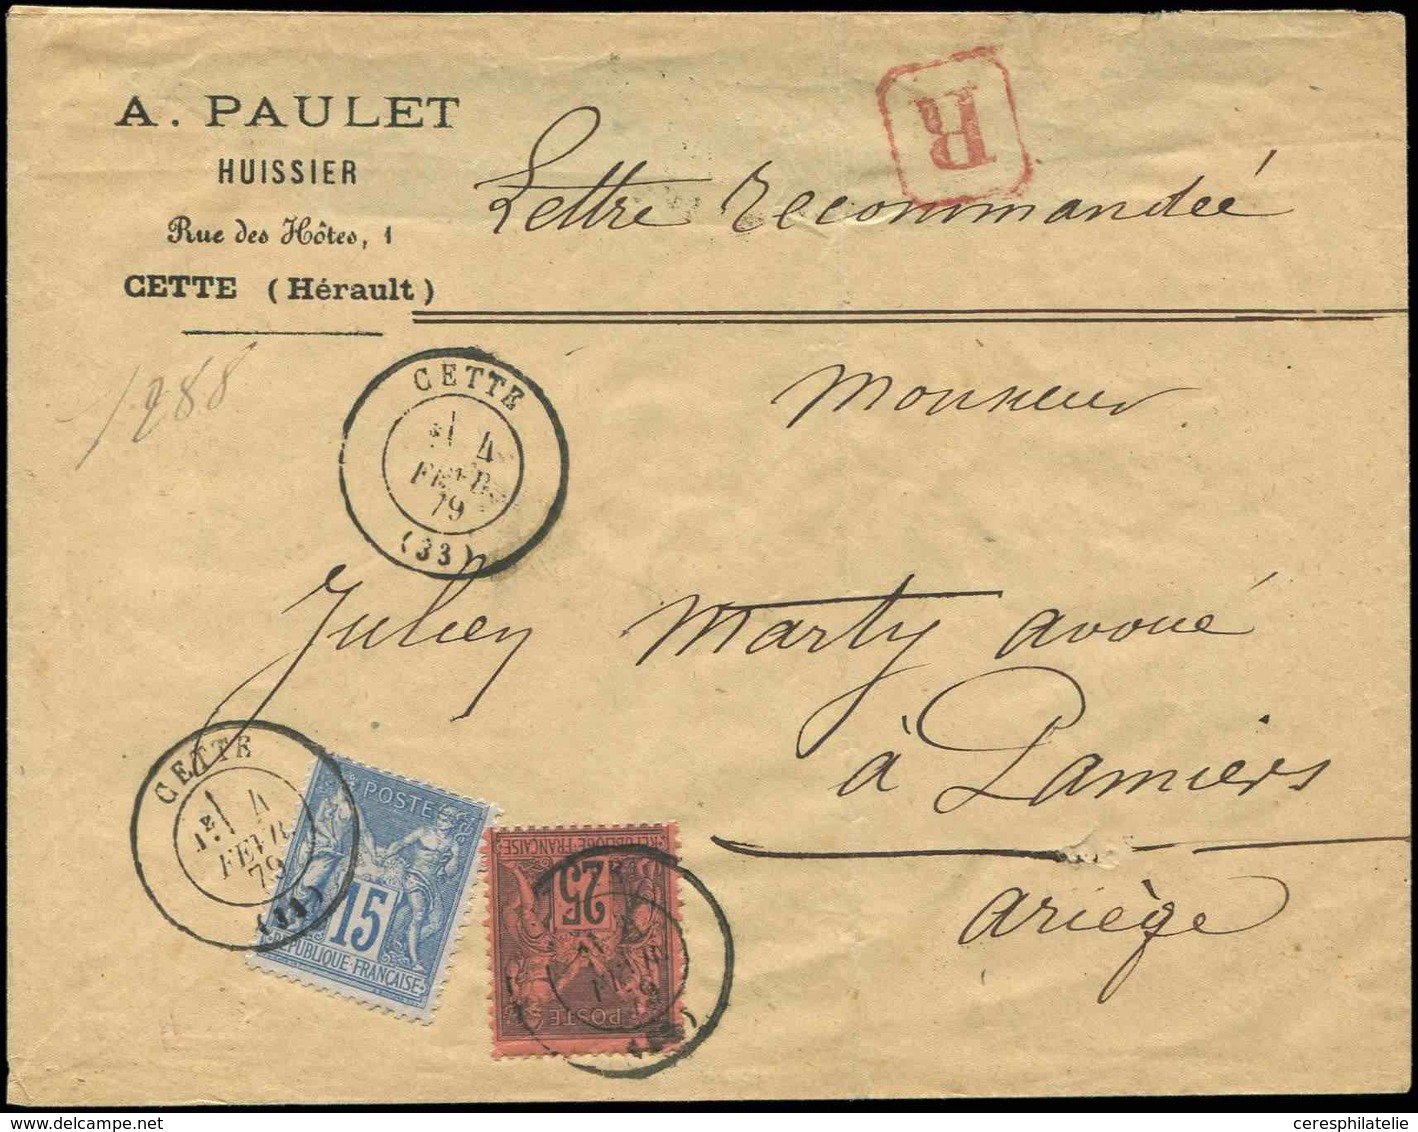 A. PAULET
HUISSIER
Rue des Hôtes, 1
CETTE (Hérault)
R
Lettre recommandée
1288
CETTE
4
FEVR
79
(33)
Monsieur
Julien Marty avoué
à Pamiers
Ariège
CETTE
1E 4
FEVR
79
POSTE
15
REPUBLIQUE-FRANÇAISE
REPUBLIQUE-FRANÇAISE
25
POSTE
delcampe.net
ceresphilatelie